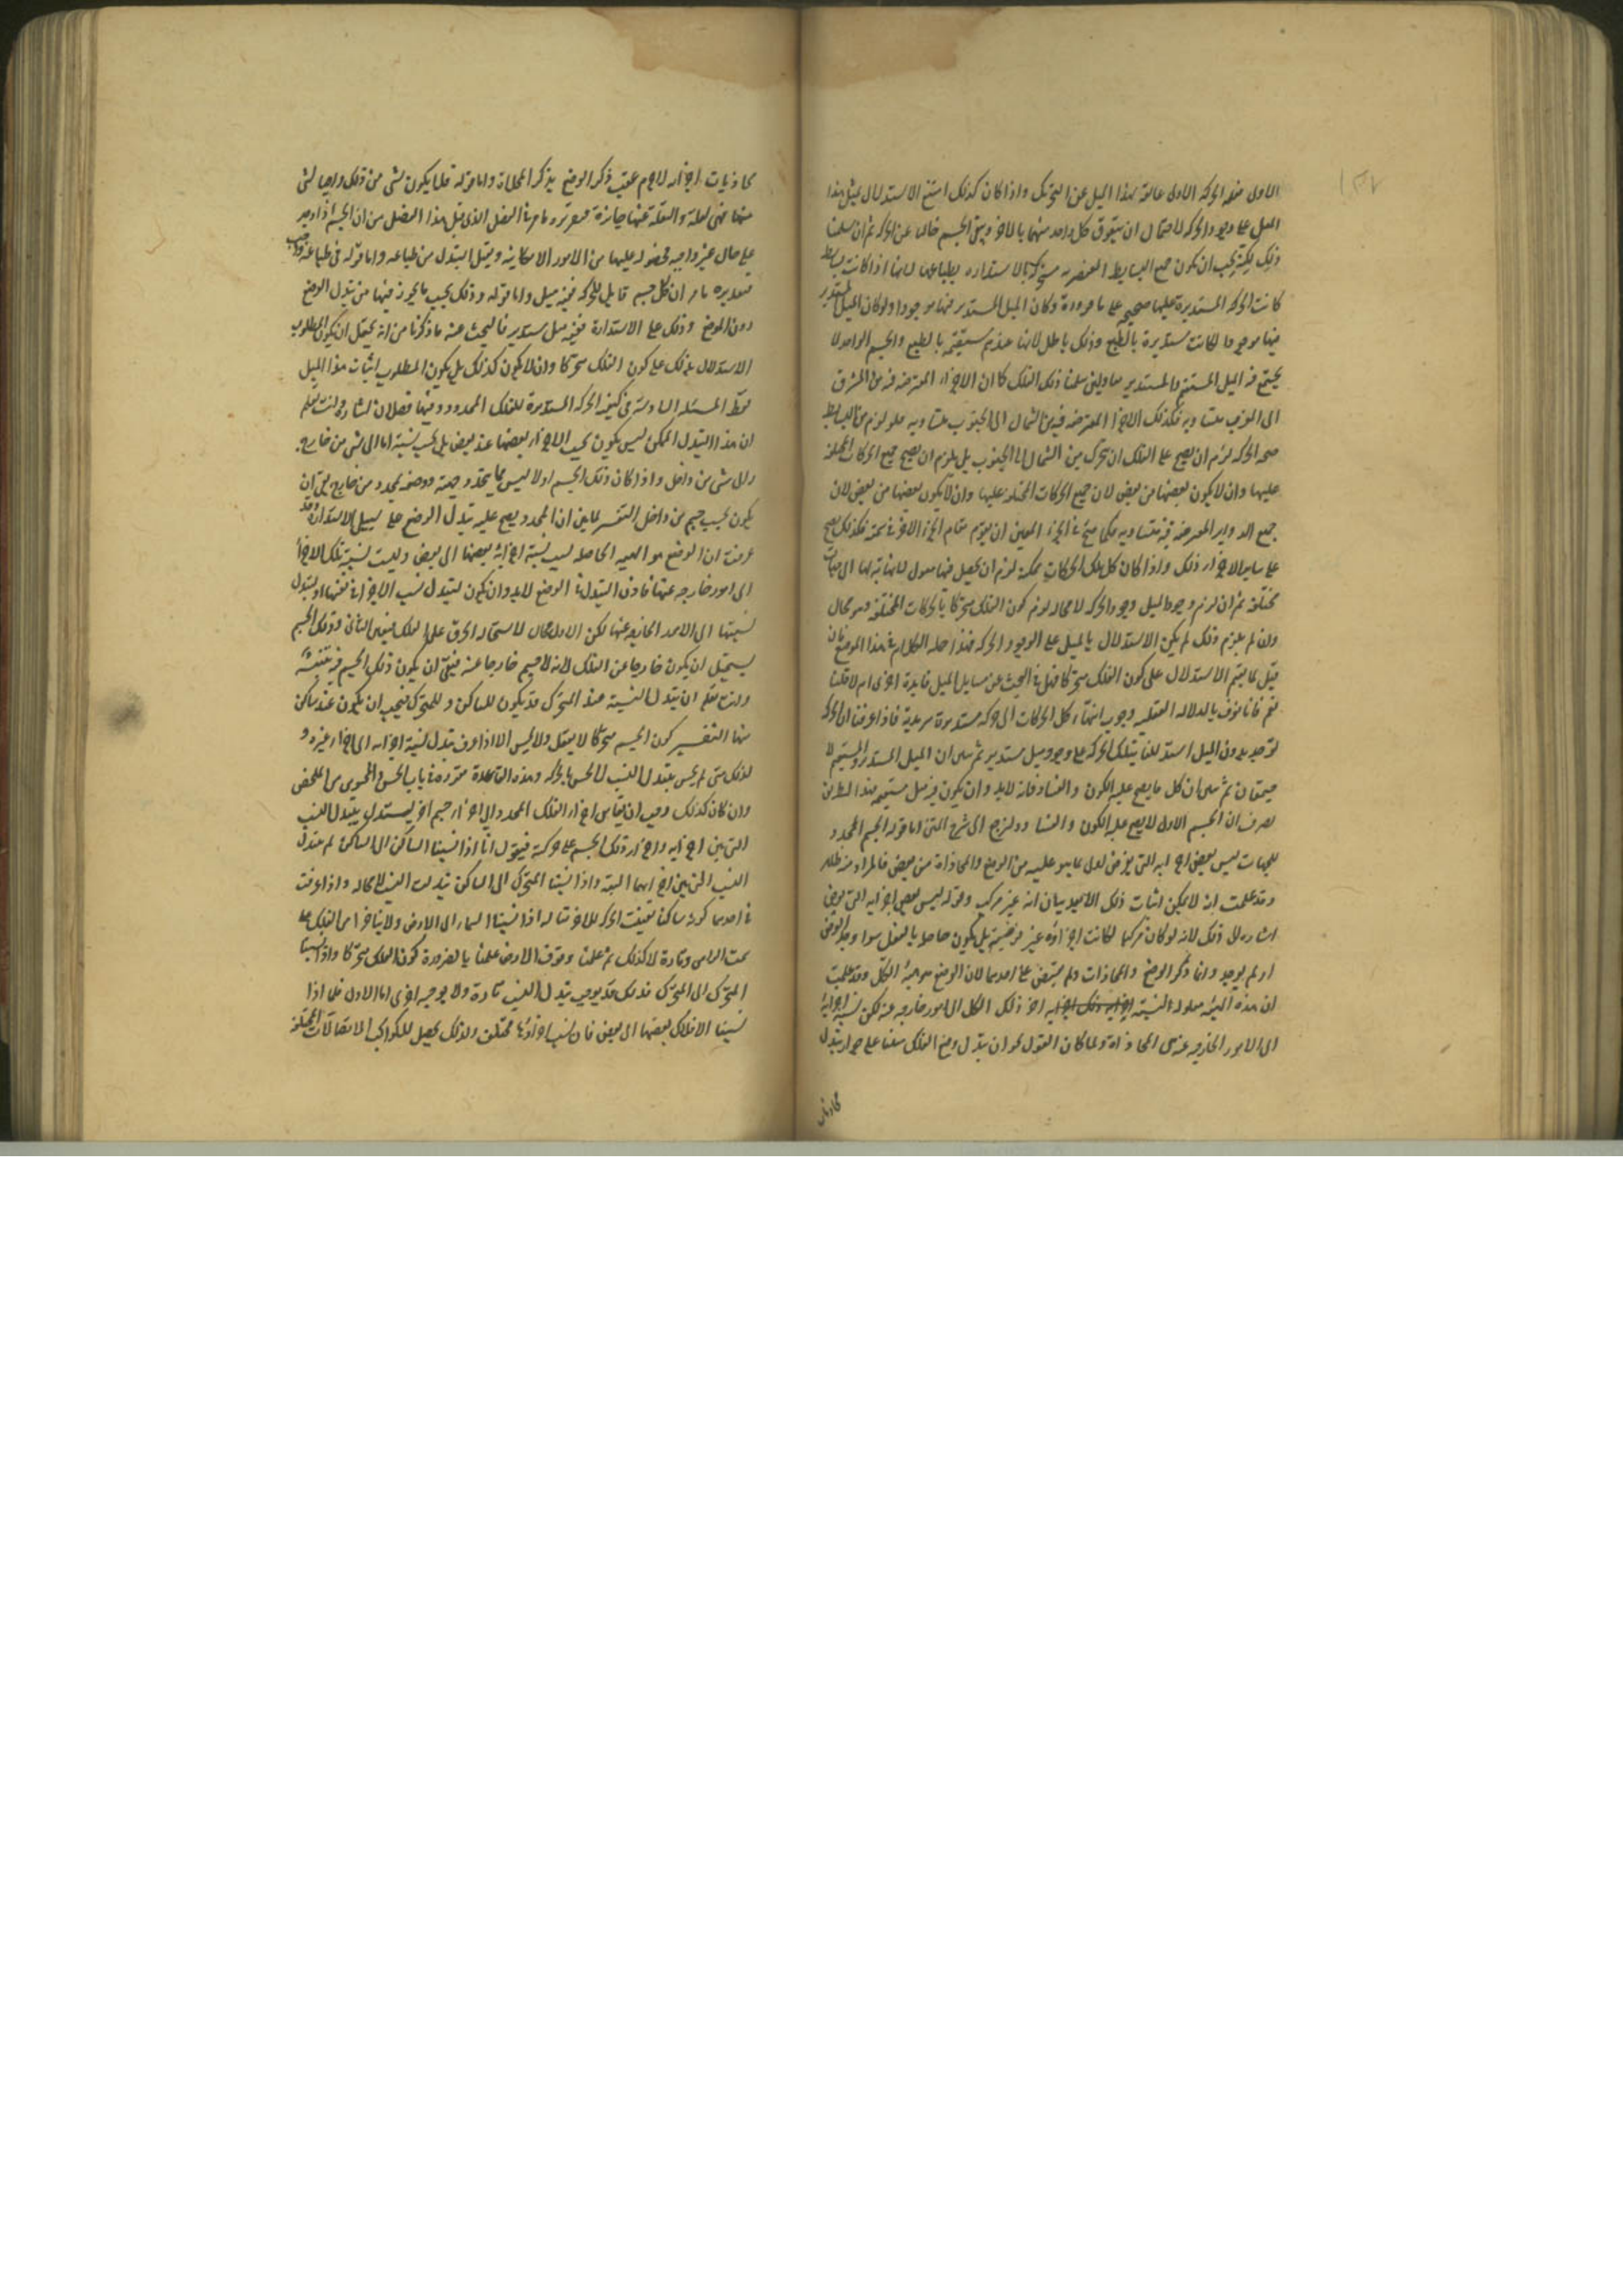 ١٣٢
الاول مفيد الحركة الاولى عائقة لهذا الميل عن التحريك واذا كان كذلك امتنع الاستدلال بمثل هذا
الميل على وجود الحركة لاحتمال ان يتعوق كل واحد منهما بالاخر ويبقى الجسم خاليا عن الحركة ثم ان سلمنا
ذلك لكنه يجب ان يكون جميع البسايط العنصرية متحركة بالاستدارة بطباعها لانها اذا كانت بسايط
كانت الحركة المستديرة عليها صحيحة على ما قررة وكان الميل المستدير فيها موجودا ولو كان الميل المستدير
فيها موجودا لكانت مستديرة بالطبع وذلك باطل لانها عندهم مستقيمة بالطبع والجسم الواحد لا
يجتمع فيه الميل المستقيم والمستدير معا ولئن سلمنا ذلك الفلك كما ان الاجزاء المعترضة فيه من المشرق
الى المغرب متشابهة فكذلك الاجزا المعترضة فيه من الشمال الى الجنوب متشابهة فلو لزم من البساطة
صحة الحركة لزم ان يصح على الفلك ان يتحرك من الشمال الى الجنوب بل يلزم ان يصح جميع الحركات المختلفة
عليها وان لا يكون بعضها من بعض لان جميع الحركات المختلفة عليها وان لا يكون بعضها من بعض لان
جميع الدواير المعترضة فيه متشابهة فكما صح في الجزء المعين ان يقوم مقام الجزء الاخر في سمته فكذلك يصح
على ساير الاجزاء ذلك واذا كان كل تلك الحركات ممكنة لزم ان يحصل فيها ميول لا نهاية لها الى جهات
مختلفة ثم ان لزم من وجود الميل وجود الحركة لا محالة لزم كون الفلك متحركا بالحركات المختلفة وهو محال
وان لم يلزم ذلك لم يكن الاستدلال بالميل على الوجود الحركة فهذا جملة الكلام في هذا الموضع فان
قيل لما لم يتم الاستدلال على كون الفلك متحركا فهل في البحث عن مسايل الميل فايدة اخرى ام لا قلنا
نعم فانا نعرف بالدلالة العقلية وجوب انتهاء كل الحركات الى حركة مستديرة سرمدية فاذا عرفنا ان الحركة
لا توجد بدون الميل استدللنا بتلك الحركة على وجود ميل مستدير ثم نبين ان الميل المستدير والمستقيم لا
يجتمعان ثم نبين ان كل ما يصح عليه الكون والفساد فانه لا بد وان يكون فيه ميل مستقيم فبهذا الطريق
نعرف ان الجسم الاول لا يصح عليه الكون والفساد ولنرجع الى شرح المتن اما قوله الجسم المحدد
للجهات ليس بعض اجزائه التي يفرض اولى بما هو عليه من الوضع والمحاذاة من بعض فالمراد منه ظاهر
وقد علمت انه لا يمكن اثبات ذلك الا بعد بيان انه غير مركب وقوله ليس بعض اجزايه التي يفرض
اشارة الى ذلك لانه لو كان مركبا لكانت اجزاؤه غير فرضية بل يكون حاصلة بالفعل سواء وجد الفرض
او لم يوجد وانما ذكر الوضع والمحاذات ولم يقتصر على احدهما لان الوضع هو هيئة الكل وقد علمت
ان هذه الهيئة معلولة لنسبة اجزاء ذلك الكل الى امور خارجة عنه لكن نسبة اجزائه
الى الامور الخارجة عنه هي المحاذاة ولما كان القول نحو ان يتبدل وضع الفلك مبنيا على جواز تبدل
محاذيات
محاذيات اجزائه لا جرم عقيب ذكر الوضع بذكر المحاذاة واما قوله فلا يكون شي من ذلك واجبا لشي
منها فهي لعلة والنقلة عنها جايزة فتقريره ما مر في الفصل الذي قبل هذا الفصل من ان الجسم اذا وجد
على حال غير واجبة فحصوله عليها من الامور الامكانية ويقبل التبدل من طباعه واما قوله في طباعه واجب
فتقديره ما مر ان كل جسم قابل للحركة ففيه ميل واما قوله وذلك بحسب ما يجوز فيها من تبدل الوضع
دون الموضع وذلك على الاستدارة ففيه ميل مستدير فالبحث عنه ما ذكرنا من انه يحتمل ان يكون المطلوب
الاستدلال بذلك على كون الفلك متحركا وان لا يكون كذلك بل يكون المطلوب اثبات هذا الميل
فقط المسئلة السادسة في كيفية الحركة المستديرة للفلك المحدد وفيها فصلان اشارة وانت تعلم
ان هذا التبدل الممكن ليس يكون بحسب الاجزاء بعضها عند بعض بل بحسب نسبة اما الى شي من خارج
والى شي من داخل واذا كان ذلك الجسم اولا ليس مما يتحدد جهته ووضعه بمحدد من خارج بقي ان
يكون بحسب جسم من داخل التفسير لما بين ان المحدد يصح عليه تبدل الوضع على سبيل الاستدارة وقد
عرفت ان الوضع هو الهيئة الحاصلة بسبب نسبة اجزائه بعضها الى بعض وبسبب نسبة تلك الاجزاء
الى امور خارجة عنها فاذن التبدل في الوضع لا بد وان يكون لتبدل نسب الاجزاء في نفسها او لتبدل
نسبتها الى الامور الخارجة عنها لكن الاول محال لاستحالة الخرق على الفلك فتعين الثاني وذلك الجسم
يستحيل ان يكون خارجا عن الفلك لانه لا جسم خارجا عنه فبقي ان يكون ذلك الجسم في
وانت تعلم ان تبدل النسبة عند المتحرك قد يكون للساكن وللمتحرك فيجب ان يكون عند ساكن
منها التفسير كون الجسم متحركا لا يعقل ولا يحس الا اذا عرف تبدل نسبة اجزائه الى اجزاء غيره و
لذلك متى لم يحس بتبدل النسب لم يحس بالحركة وهذه القاعدة مقررة في باب الحس والمحسوس من الملخص
وان كان كذلك وجب ان يقاس اجزاء الفلك المحدد الى اجزاء جسم اخر ليستدل بتبدل النسب
التي بين اجزايه واجزاء ذلك الجسم على حركته فنقول انا اذا نسبنا الساكن الى الساكن لم يتبدل
النسب التي بين اجزايهما البتة واذا نسبنا المتحرك الى الساكن تبدلت النسب لا محالة واذا عرفت
في احدهما كونه ساكنا تعينت الحركة للاخر مثاله اذا نسبنا السماء الى الارض ورأينا جزءا من الفلك على
سمت الراس وتارة لا كذلك ثم علمنا وقوف الارض علمنا بالضرورة كون الفلك متحركا واذا نسبنا
المتحرك الى المتحرك فذلك قد يوجب تبدل النسب تارة ولا يوجبه اخرى اما الاول فلما اذا
نسبنا الافلاك بعضها الى بعض فان نسب اجزائها تختلف ولذلك يحصل للكواكب الاتصالات المختلفة